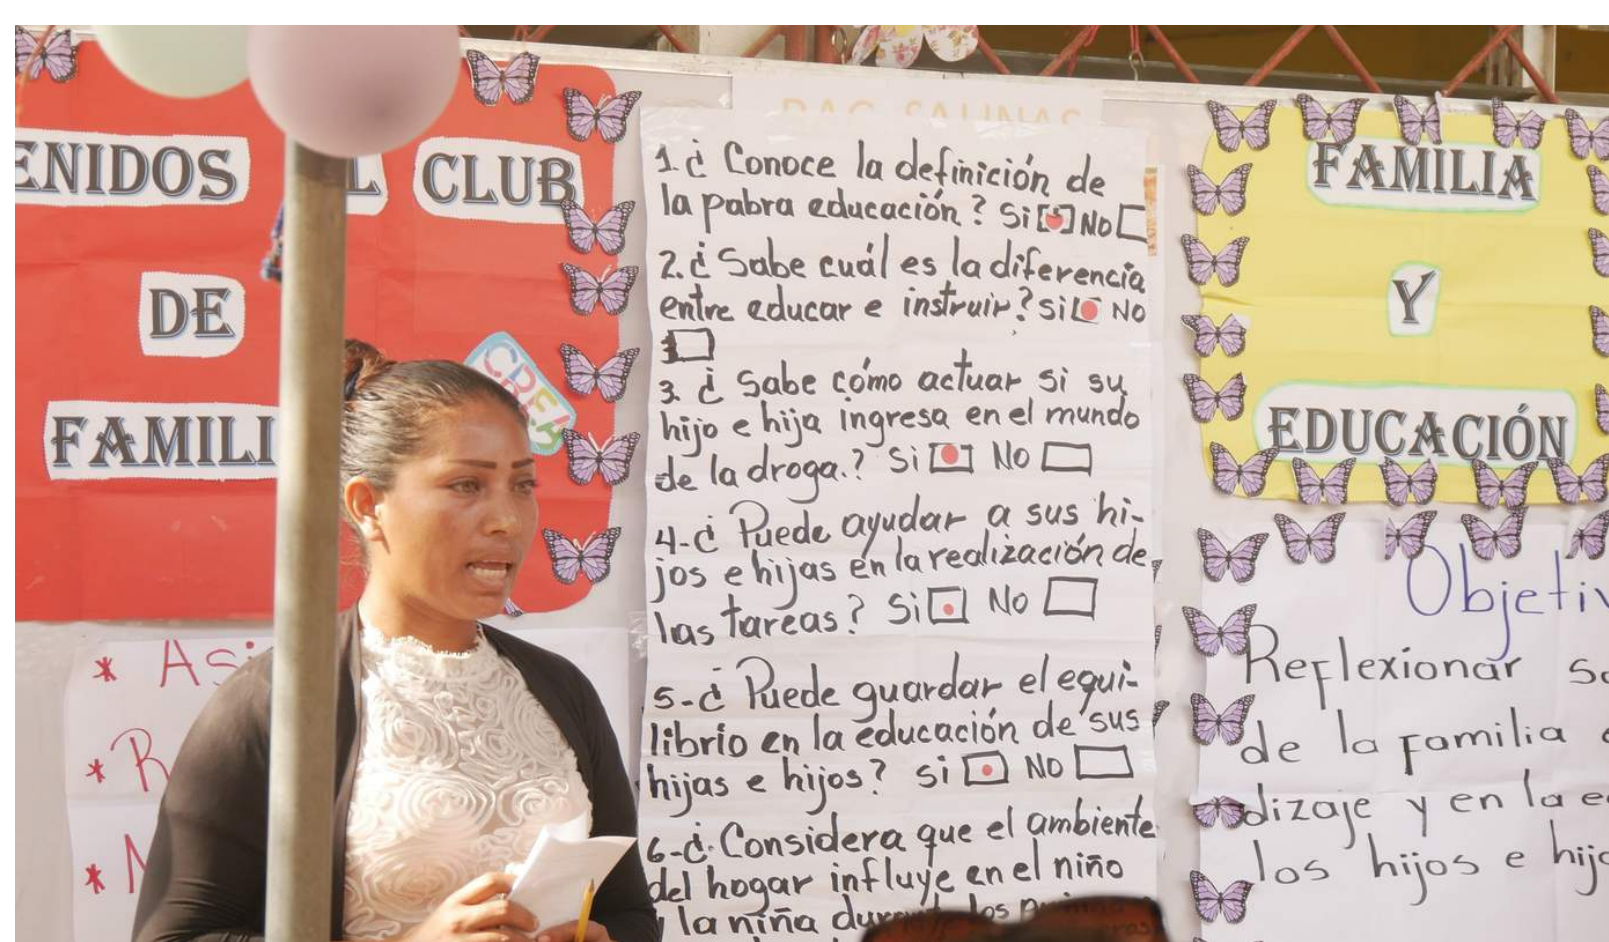 ENIDOS L CLUB
DE
FAMILI
CREA
* Asi
* R
* N
PAC SALINAS
1. ¿ Conoce la definición de
la pabra educación? Si NO
2. ¿ Sabe cuál es la diferencia
entre educar e instruir? Si NO
3. ¿ Sabe cómo actuar si su
hijo e hija ingresa en el mundo
de la droga.? Si NO
4-¿ Puede ayudar a sus hi-
jos e hijas en la realización de
las tareas? Si NO
5-¿ Puede guardar el equi-
librio en la educación de sus
hijas e hijos? si NO
6-¿ Considera que el ambiente
del hogar influye en el niño
y la niña durante los
FAMILIA
Y
EDUCACIÓN
Objetiv
Reflexionar so
de la familia e
dizaje y en la e
los hijos e hija